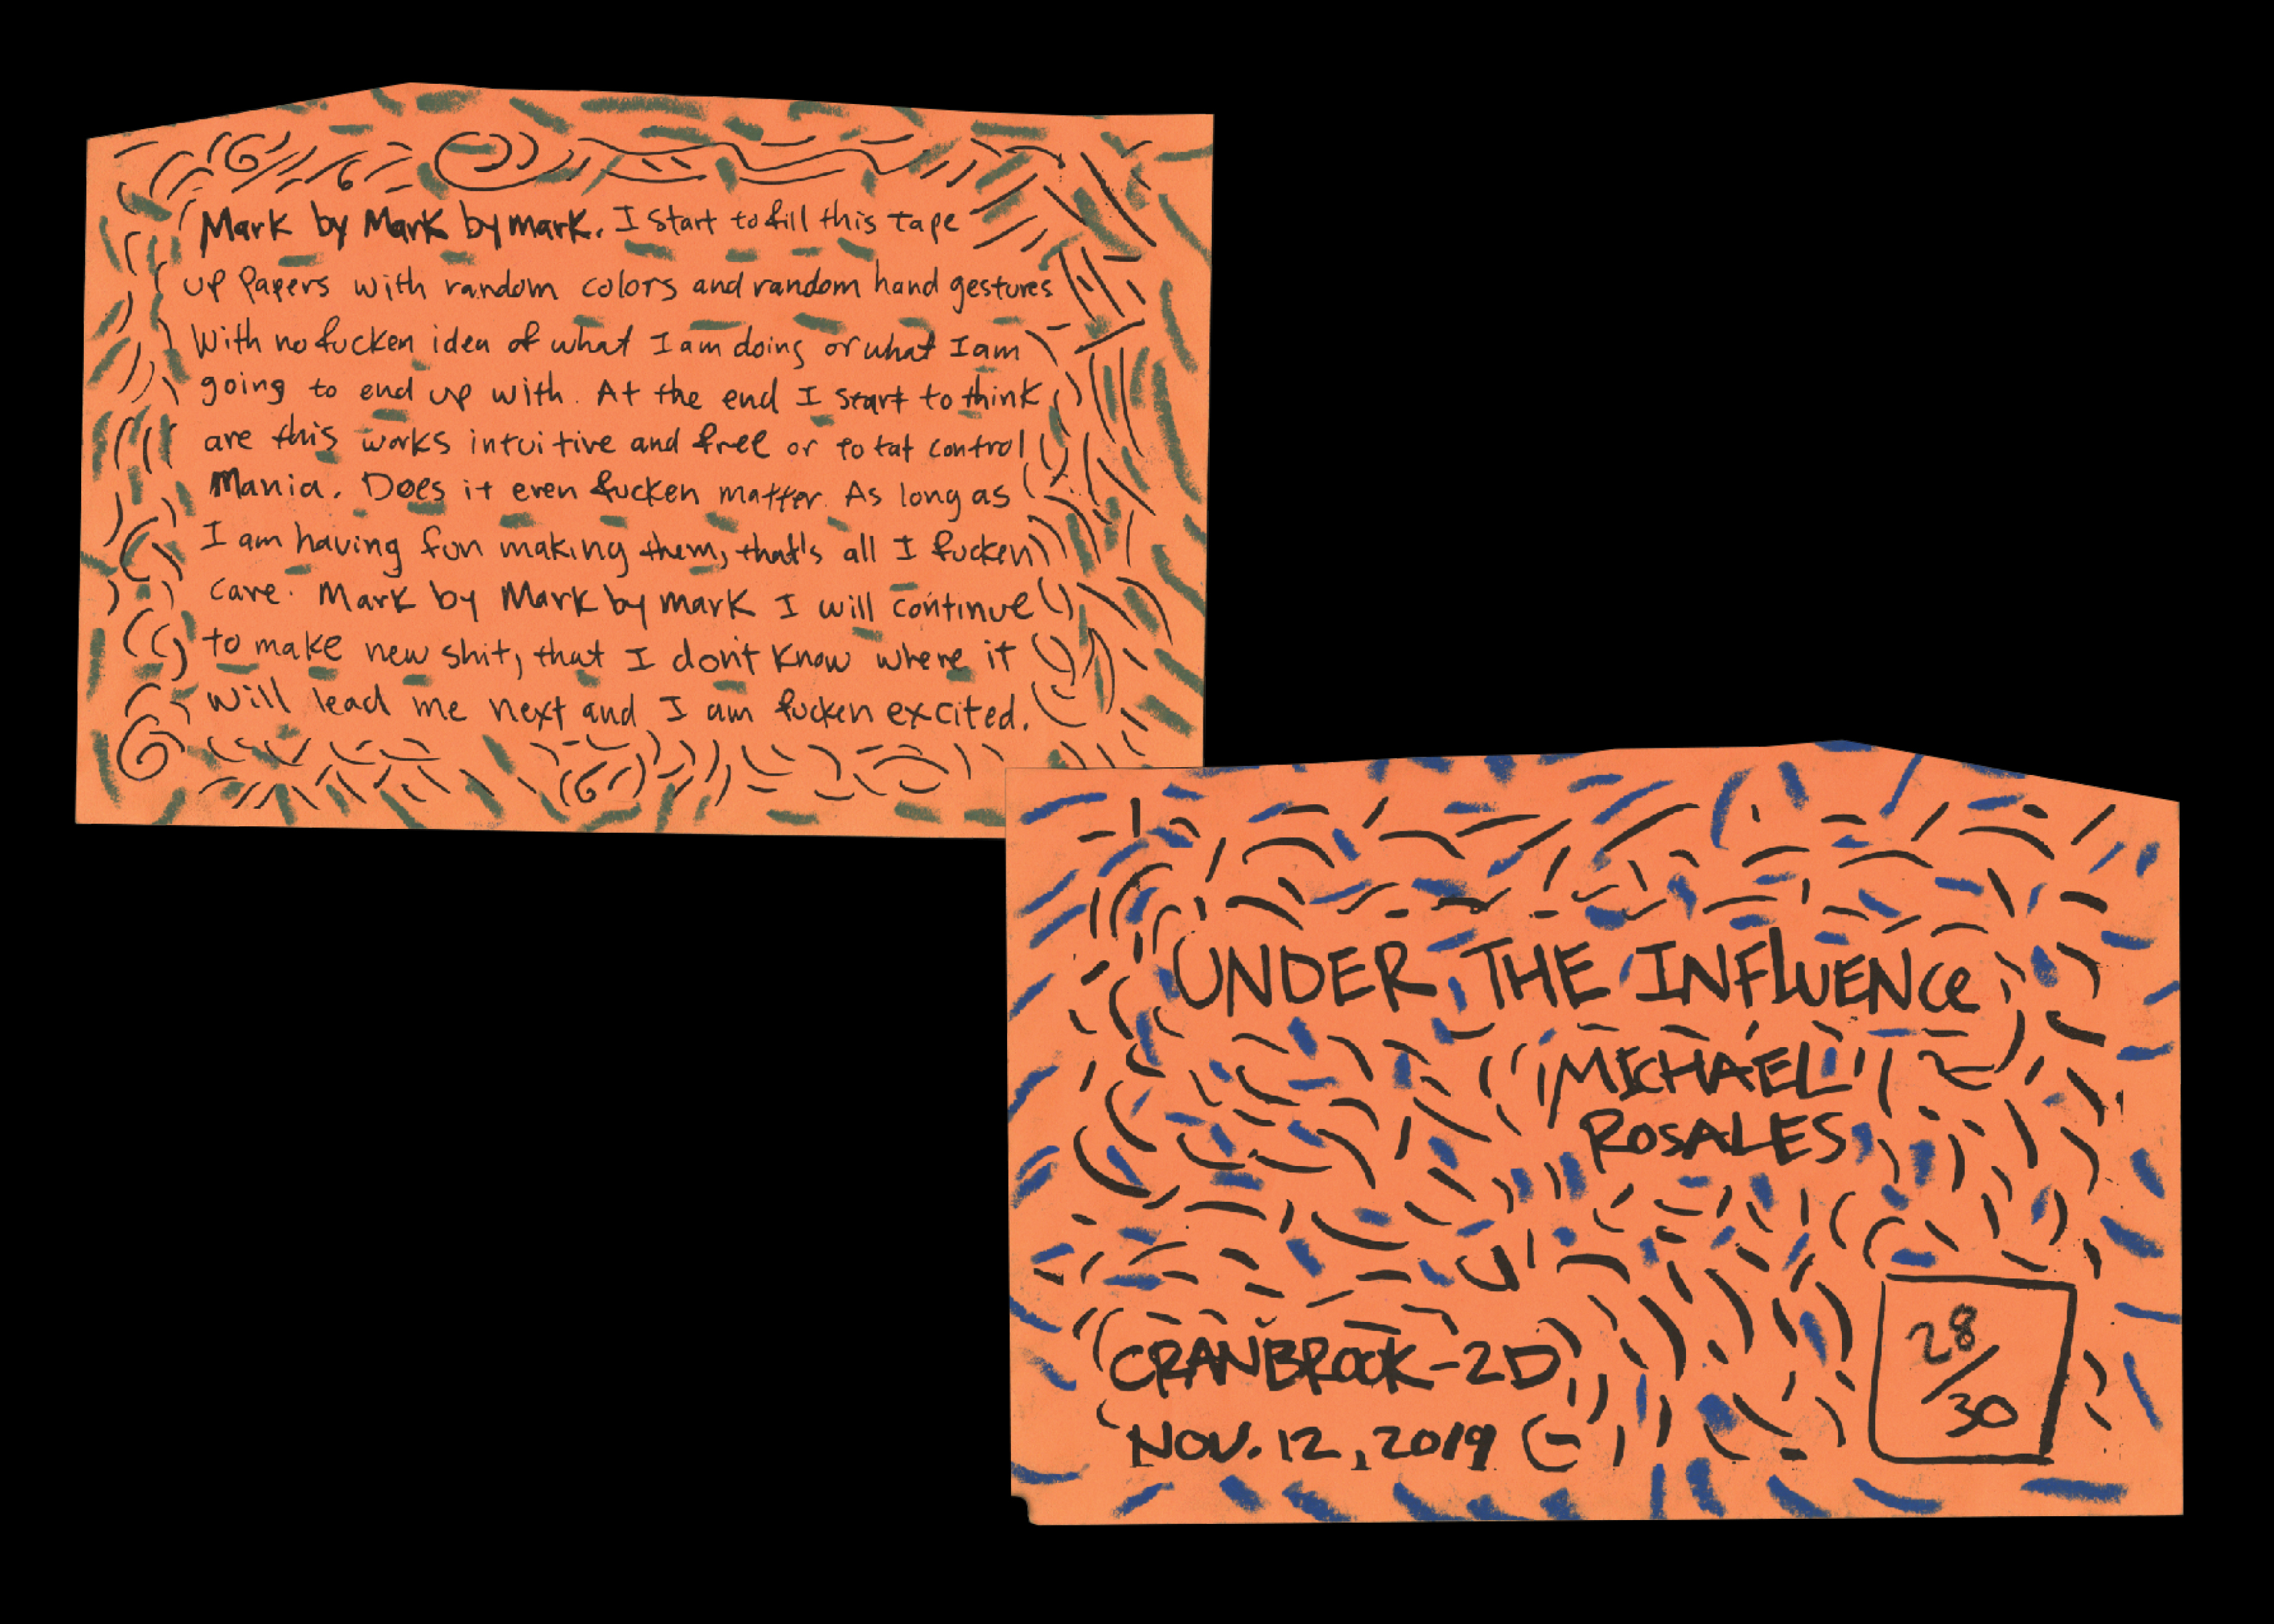 Mark by Mark by mark. I start to fill this tape
up Papers with random colors and random hand gestures
With no fucken idea of what I am doing or what I am
going to end up with. At the end I start to think
are this works intuitive and free or totat control
Mania. Does it even fucken matter. As long as
I am having fun making them, that's all I fucken
care. Mark by Mark by mark I will continue
to make new shit, that I don't know where it
will lead me next and I am fucken excited.
UNDER THE INFLUENCe
MICHAEL
ROSALES
CRANBROOK-2D
NOV. 12, 2019
28/30